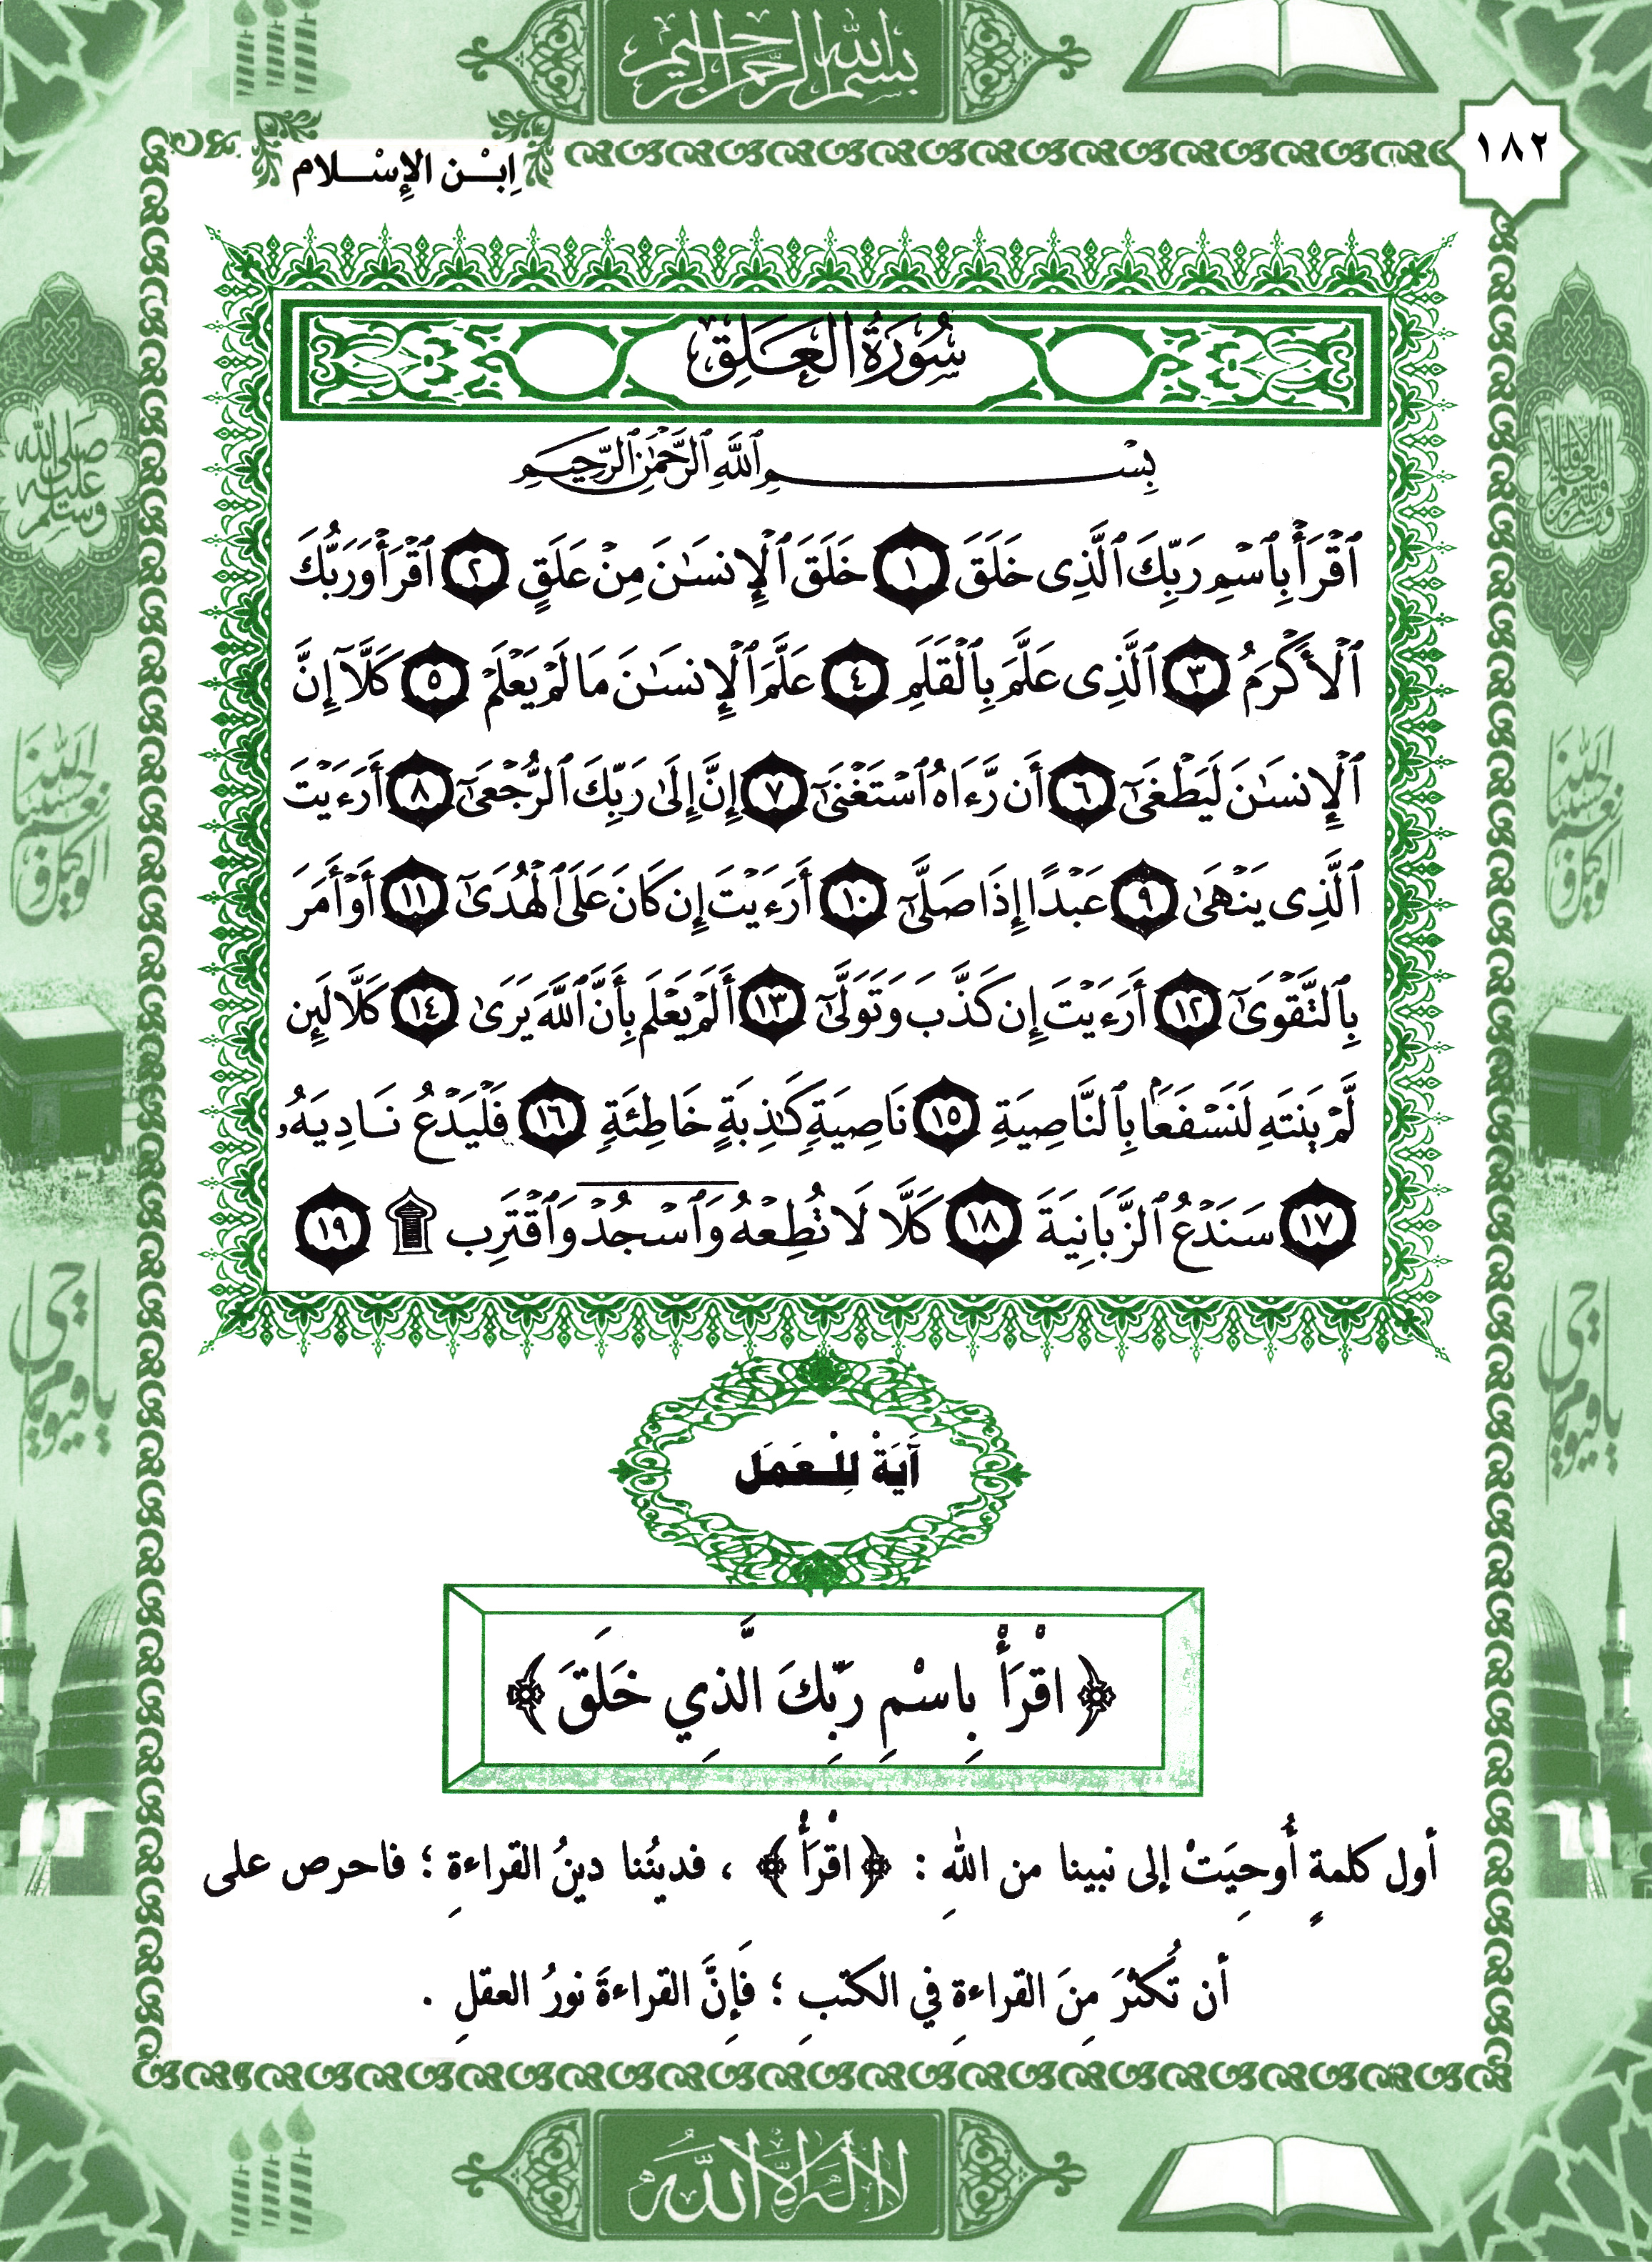 بسم الله الرحمن الرحيم
١٨٢
اِبْـــن الإِسْـــلام
سُورَةُ العَلَقِ
بِسْمِ ٱللَّهِ ٱلرَّحْمَٰنِ ٱلرَّحِيمِ
ٱقْرَأْ بِٱسْمِ رَبِّكَ ٱلَّذِى خَلَقَ ١ خَلَقَ ٱلْإِنسَٰنَ مِنْ عَلَقٍ ٢ ٱقْرَأْ وَرَبُّكَ
ٱلْأَكْرَمُ ٣ ٱلَّذِى عَلَّمَ بِٱلْقَلَمِ ٤ عَلَّمَ ٱلْإِنسَٰنَ مَا لَمْ يَعْلَمْ ٥ كَلَّآ إِنَّ
ٱلْإِنسَٰنَ لَيَطْغَىٰٓ ٦ أَن رَّءَاهُ ٱسْتَغْنَىٰٓ ٧ إِنَّ إِلَىٰ رَبِّكَ ٱلرُّجْعَىٰٓ ٨ أَرَءَيْتَ
ٱلَّذِى يَنْهَىٰ ٩ عَبْدًا إِذَا صَلَّىٰٓ ١٠ أَرَءَيْتَ إِن كَانَ عَلَى ٱلْهُدَىٰٓ ١١ أَوْ أَمَرَ
بِٱلتَّقْوَىٰٓ ١٢ أَرَءَيْتَ إِن كَذَّبَ وَتَوَلَّىٰٓ ١٣ أَلَمْ يَعْلَم بِأَنَّ ٱللَّهَ يَرَىٰ ١٤ كَلَّا لَئِن
لَّمْ يَنتَهِ لَنَسْفَعًۢا بِٱلنَّاصِيَةِ ١٥ نَاصِيَةٍ كَٰذِبَةٍ خَاطِئَةٍ ١٦ فَلْيَدْعُ نَادِيَهُۥ
١٧ سَنَدْعُ ٱلزَّبَانِيَةَ ١٨ كَلَّا لَا تُطِعْهُ وَٱسْجُدْ وَٱقْتَرِب ۩ ١٩
آيَةٌ لِلْـعَمَل
﴿ اقْرَأْ بِاسْمِ رَبِّكَ الَّذِي خَلَقَ ﴾
أول كلمةٍ أُوحِيَتْ إلى نبينا من اللهِ : ﴿ اقْرَأْ ﴾ ، فدينُنا دينُ القراءةِ ؛ فاحرص على
أن تُكثرَ مِنَ القراءةِ في الكتبِ ؛ فَإِنَّ القراءةَ نورُ العقلِ .
صلى الله عليه وسلم
الله حسبنا ونعم الوكيل
الله حسبنا ونعم الوكيل
يا حي يا قيوم
يا حي يا قيوم
لا اله الا الله